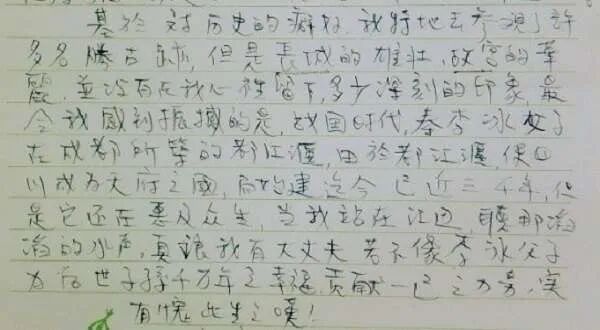 基於对历史的癖好,我特地去參观了許
多名勝古跡,但是長城的雄壯,故宮的華
麗,並没有在我心裡留下多少深刻的印象,最
令我感到振撼的是,战国时代,秦李冰父子
在成都所築的都江堰,由於都江堰,使四
川成為天府之國,高始建迄今已近三千年,但
是它还在惠及众生,当我站在江边,聽那滔
滔的水声,真讓我有大丈夫若不像李冰父子
为后世子孫千万年之幸福,贡献一己之力量,实
有愧此生之嘆!